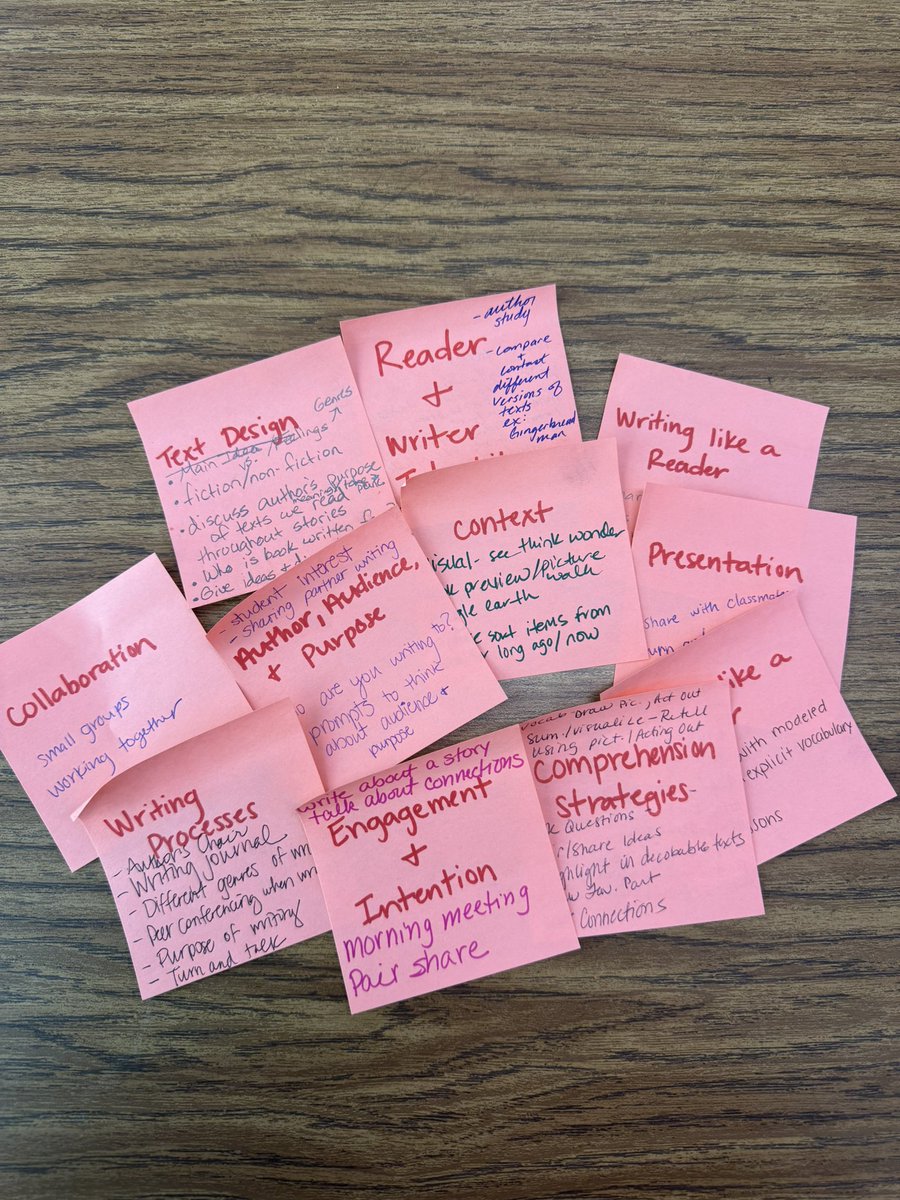 Text Design
Genres
Main Idea / Feelings
vs.
• fiction/non-fiction
• discuss author's purpose
of texts we read
throughout stories
• Who is book written
• Give ideas +
Reader
+
Writer
- author
study
- compare
+
contrast
different
versions of
texts
ex:
Gingerbread
man
Writing like a
Reader
Context
see think wonder
preview/picture
walk
earth
sort items from
long ago/now
Presentation
share with classmates
- student interest
- sharing partner writing
Author, Audience,
+ Purpose
are you writing to?
prompts to think
about audience +
purpose
Collaboration
small groups
working together
like a
with modeled
explicit vocabulary
Writing
Processes
- Authors Chair
- Writing journal
- Different genres of
- Peer conferencing when
- Purpose of writing
- Turn and talk
write about a story
talk about connections
Engagement
+
Intention
morning meeting
Pair share
Vocab Draw Pic., Act Out
Sum./Visualize - Retell
using pict./Acting Out
Comprehension
Strategies-
Questions
/Share Ideas
highlight in decobable texts
Part
Connections